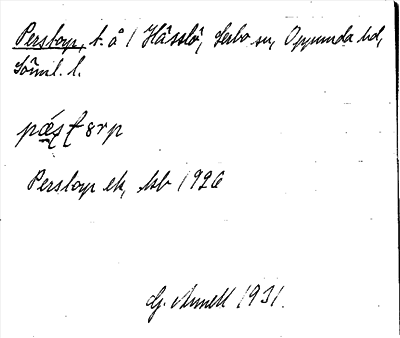 Perstorp, t. å 1 Hässlö, Lerbo sn, Oppunda hd,
Söml. l.
Perstorp ek, bl 1926
G. Annell 1931.